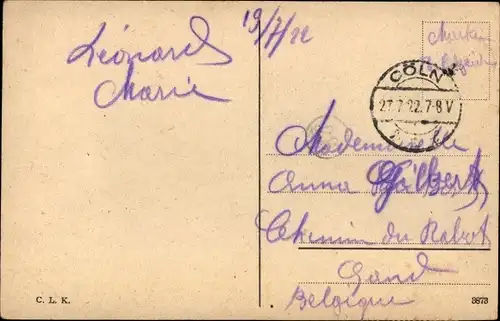 19/7/22
Léonard
Marie
CÖLN
27.7.22.7-8V
Mademoiselle
Anna Gilbert
Chemin du Rabot
Gand
Belgique
C. L. K.
3873